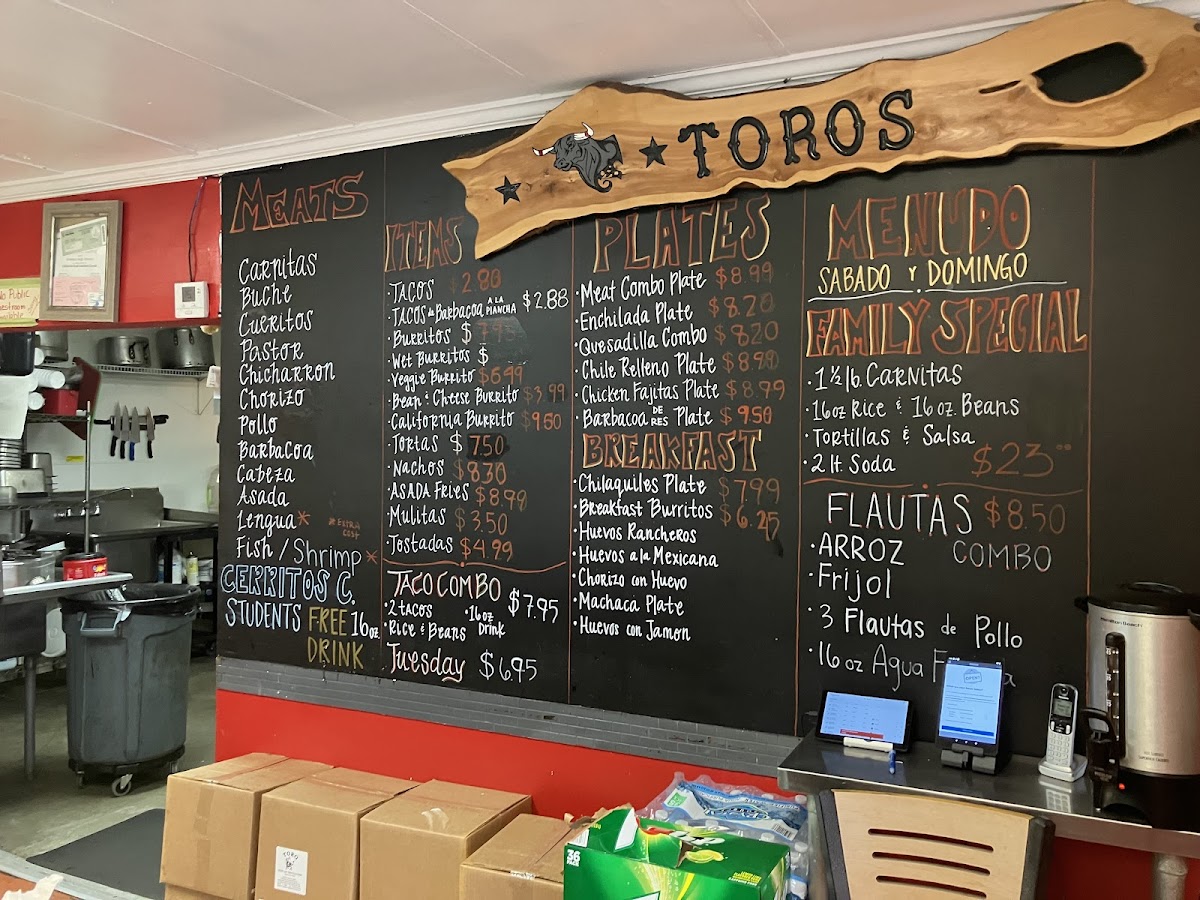 TOROS
MEATS
Carnitas
Buche
Cueritos
Pastor
Chicharron
Chorizo
Pollo
Barbacoa
Cabeza
Asada
Lengua* * EXTRA COST
Fish / Shrimp *
CERRITOS C.
STUDENTS FREE 16oz
DRINK
ITEMS
· TACOS $2.80
· TACOS de Barbacoa A LA PLANCHA $2.88
· Burritos $7.95
· Wet Burritos $
· Veggie Burrito $6.99
· Bean & Cheese Burrito $3.99
· California Burrito $9.60
· Tortas $7.50
· Nachos $8.30
· ASADA Fries $8.99
· Mulitas $3.50
· Tostadas $4.99
TACO COMBO $7.95
· 2 tacos · 16oz drink
· Rice & Beans
Tuesday $6.95
PLATES
· Meat Combo Plate $8.99
· Enchilada Plate $8.20
· Quesadilla Combo $8.20
· Chile Relleno Plate $8.90
· Chicken Fajitas Plate $8.99
· Barbacoa DE RES Plate $9.50
BREAKFAST
· Chilaquiles Plate $7.99
· Breakfast Burritos $6.25
· Huevos Rancheros
· Huevos a la Mexicana
· Chorizo con Huevo
· Machaca Plate
· Huevos con Jamon
MENUDO
SABADO Y DOMINGO
FAMILY SPECIAL
· 1 ½ lb. Carnitas
· 16oz Rice & 16oz. Beans
· Tortillas & Salsa
· 2 lt. Soda $23.00
FLAUTAS $8.50
· ARROZ COMBO
· Frijol
· 3 Flautas de Pollo
· 16 oz Agua
No Public
36
PACK
TORO